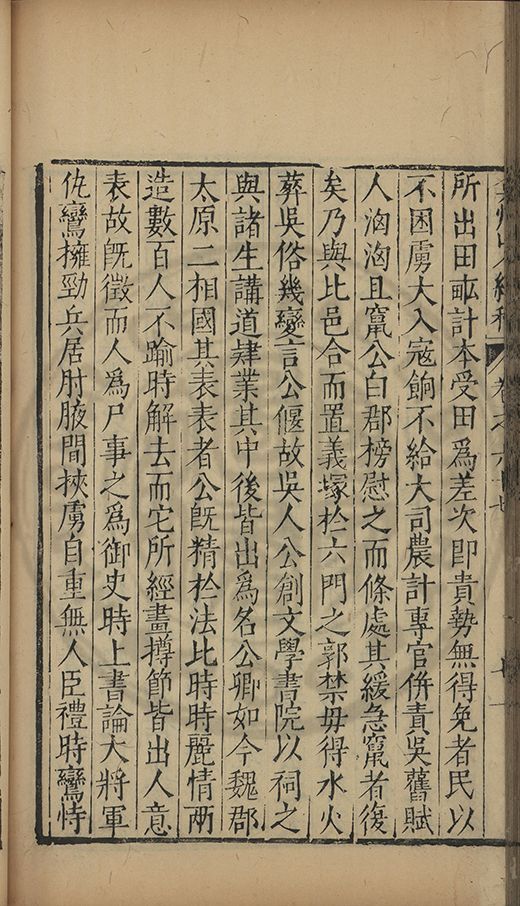 所出田畝計本受田爲差次即責勢無得免者民以
不困虜大入寇餉不給大司農計專官併責吳舊賦
人洶洶且竄公白郡榜慰之而條處其緩急竄者復
矣乃與比邑合而置義塚於六門之郭禁毋得水火
葬吳俗幾變言公偃故吳人公創文學書院以祠之
與諸生講道肄業其中後皆出爲名公卿如今魏郡
太原二相國其表表者公旣精於法比時時麗情兩
造數百人不踰時解去而它所經畫撙節皆出人意
表故旣徵而人爲尸事之爲御史時上書論大將軍
仇鸞擁勁兵居肘腋間挾虜自重無人臣禮時鸞恃